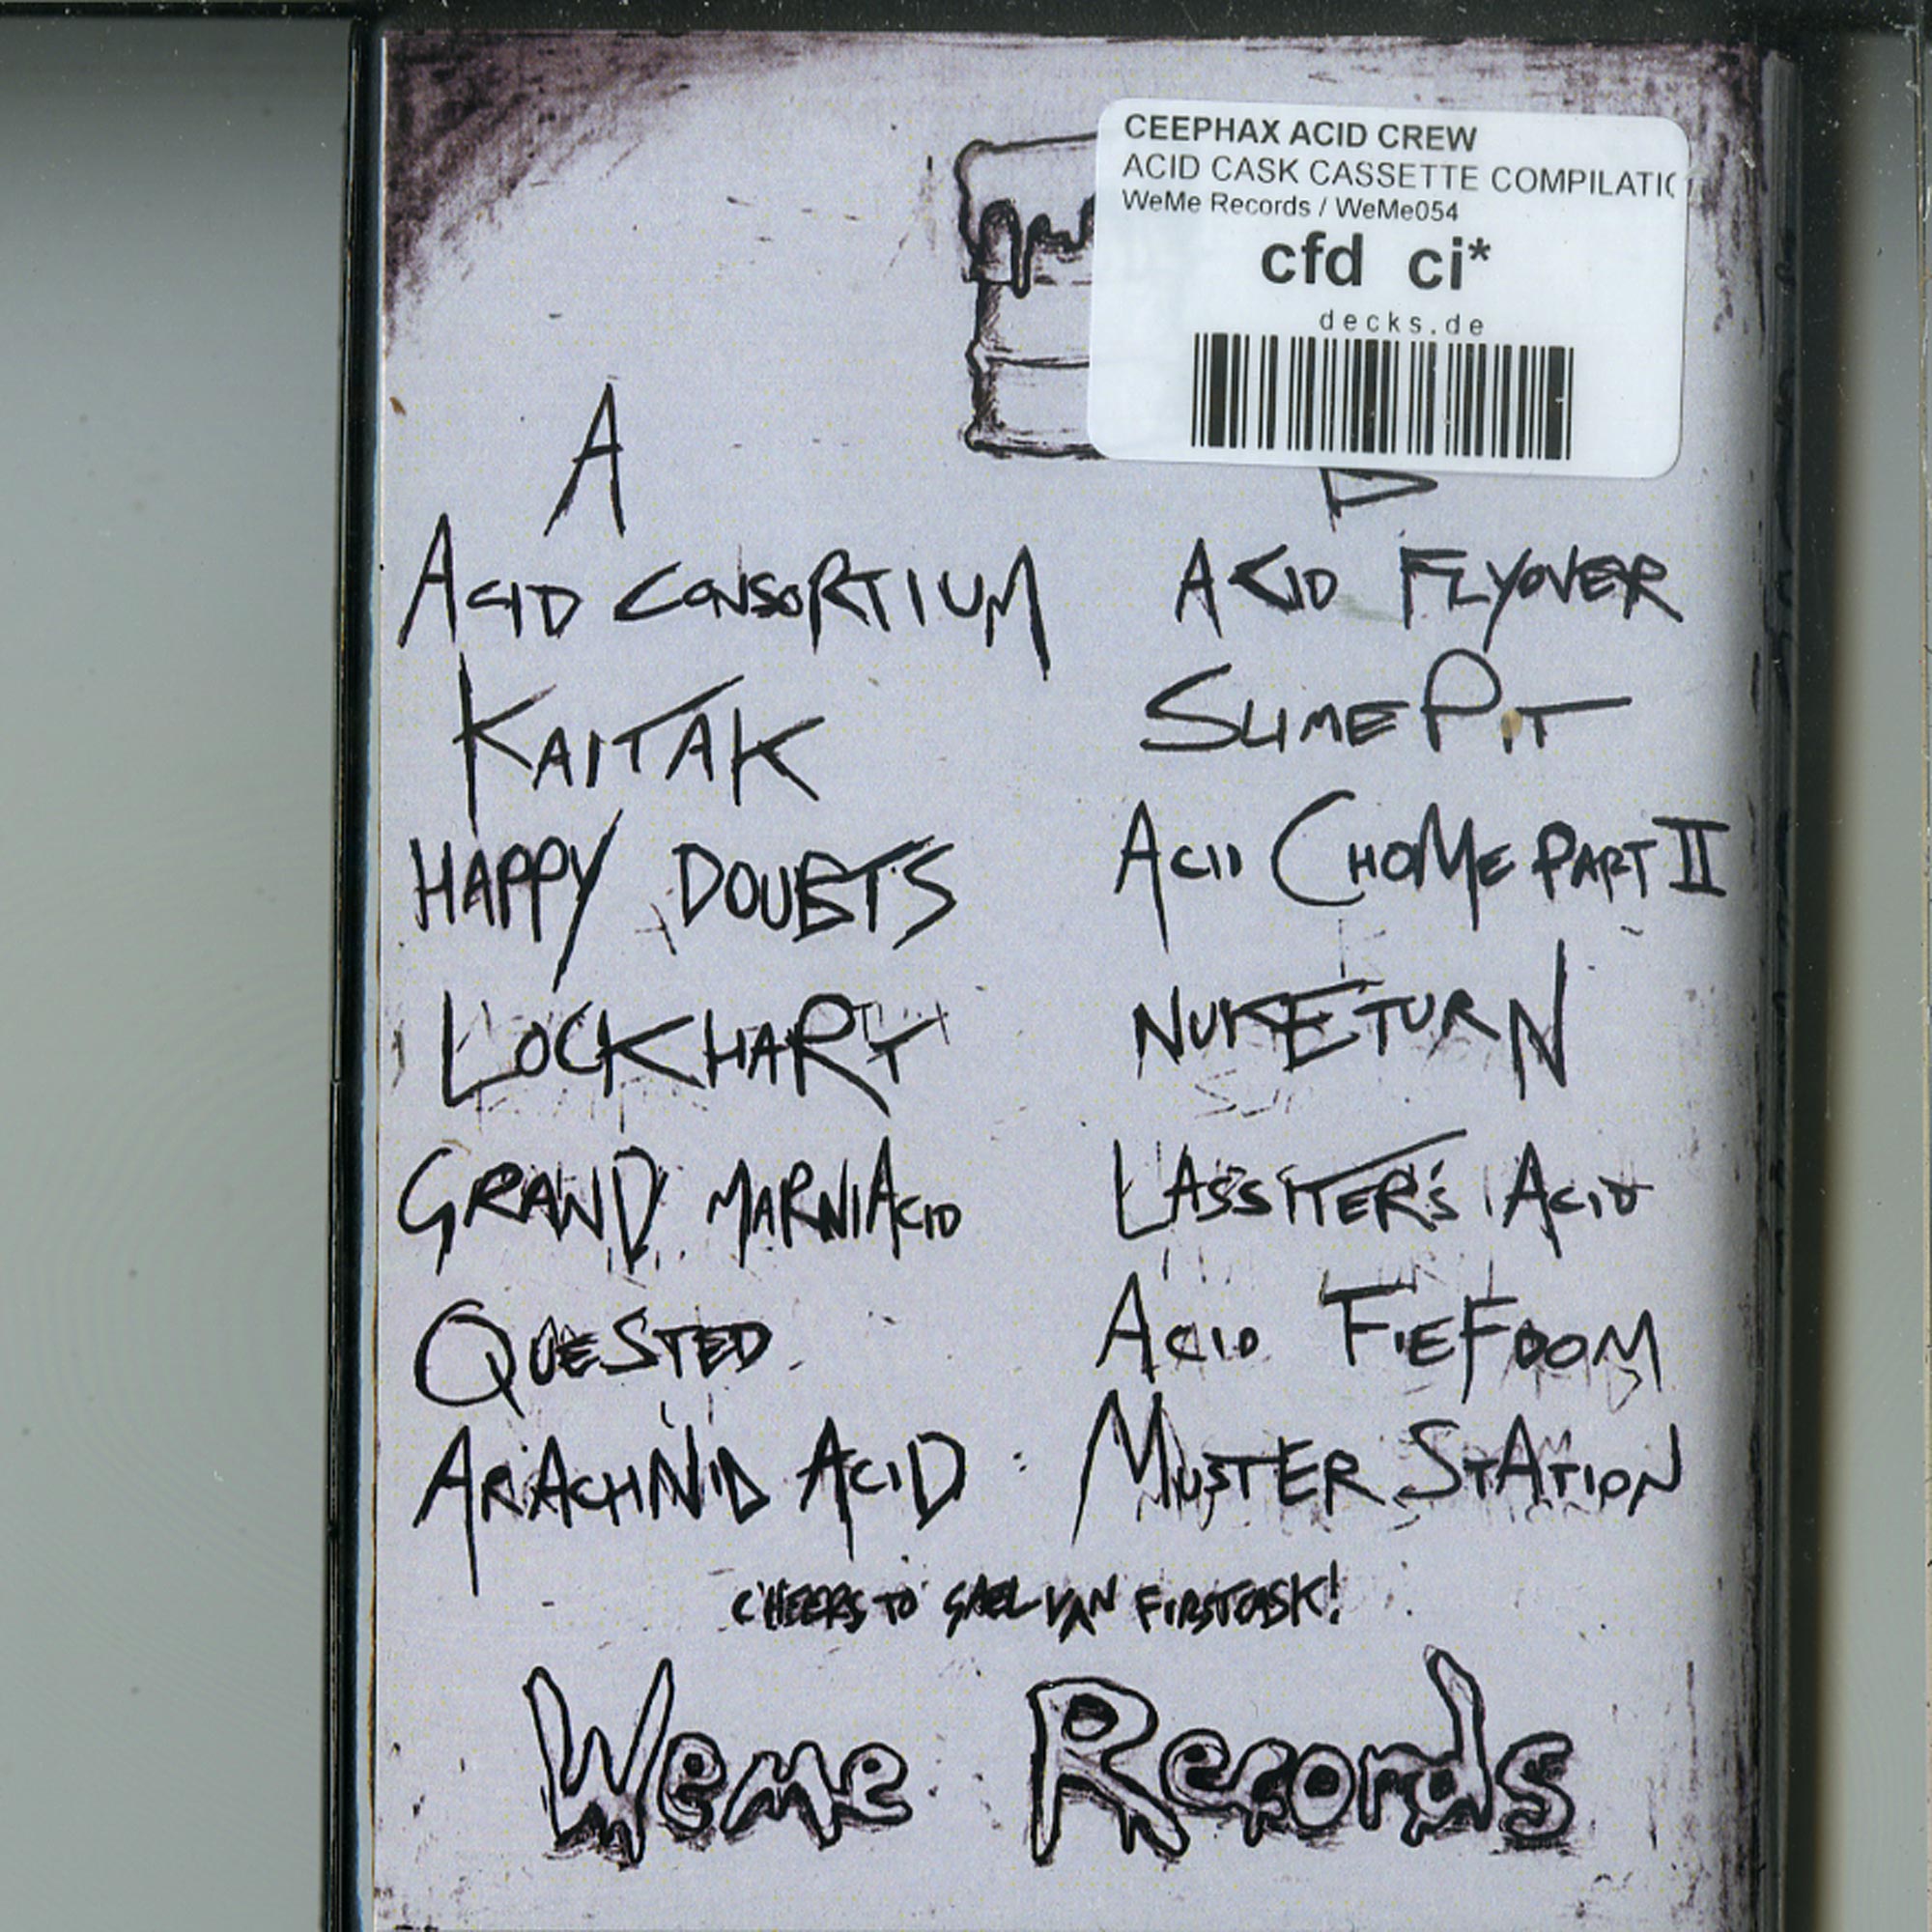 CEEPHAX ACID CREW
ACID CASK CASSETTE COMPILATIO
WeMe Records / WeMe054
cfd ci*
decks.de
A
ACID CONSORTIUM
KAITAK
HAPPY DOUBTS
LOCKHART
GRAND MARNIACID
QUESTED
ARACHNID ACID
ACID FLYOVER
SLIME PIT
ACID CHOME PART II
NUKETURN
LASSITER'S ACID
ACID FIEFDOM
MUSTER STATION
CHEERS TO GAEL VAN FIRSTCASK!
Weme Records